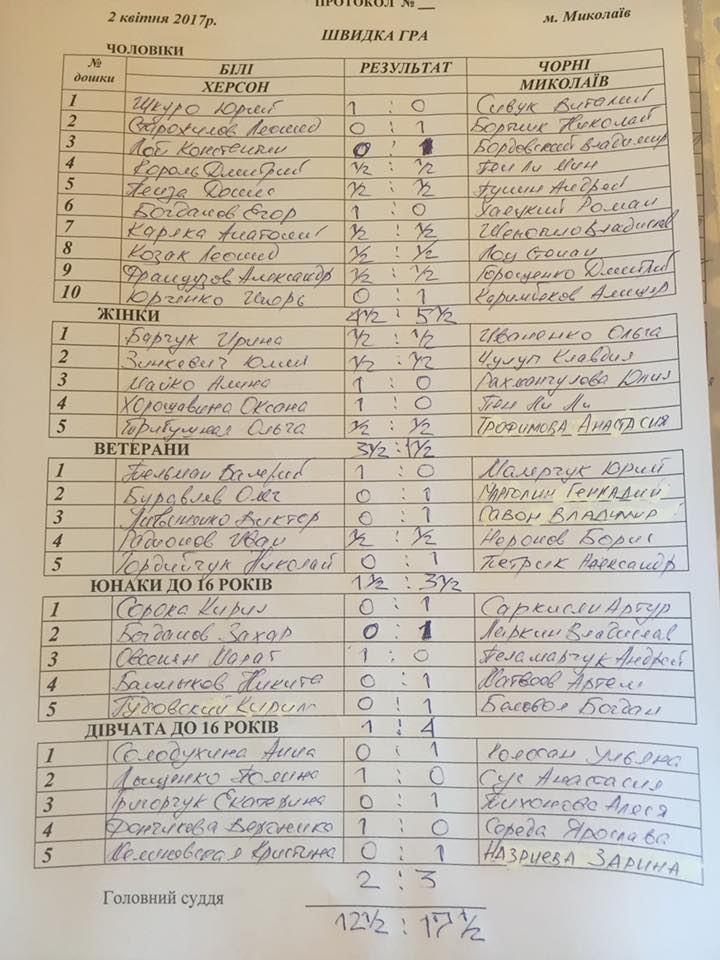 ПРОТОКОЛ №__
2 квітня 2017р. м. Миколаїв
ШВИДКА ГРА
ЧОЛОВІКИ
№ дошки БІЛІ РЕЗУЛЬТАТ ЧОРНІ
ХЕРСОН МИКОЛАЇВ
1 Шкуро Юрий 1 : 0 Сивук Виталий
2 Старожилов Леонид 0 : 1 Бортник Николай
3 Лой Константин 0 : 1 Бордовский Владимир
4 Король Дмитрий ½ : ½ Пен Ли Мин
5 Пенза Данил ½ : ½ Пушин Андрей
6 Богданов Егор 1 : 0 Гаецкий Роман
7 Каряка Анатолий ½ : ½ Владислав
8 Козак Леонид ½ : ½ Лоц Степан
9 Французов Александр ½ : ½ Горощенко Дмитрий
10 Юрченко Игорь 0 : 1 Каримбеков Алишер
ЖІНКИ 4½ : 5½
1 Барчук Ирина ½ : ½ Иваненко Ольга
2 Зинкович Юлия ½ : ½ Чулуп Клавдия
3 Майко Алина 1 : 0 Рахмангулова Юлия
4 Хорошавина Оксана 1 : 0 Пен Ми Ли
5 Ольга ½ : ½ Трофимова Анастасия
ВЕТЕРАНИ 3½ : 1½
1 Пельман Валерий 1 : 0 Малярчук Юрий
2 Буравлев Олег 0 : 1 Марголин Геннадий
3 Литвиненко Виктор 0 : 1 Савон Владимир
4 Радионов Иван ½ : ½ Неронов Борис
5 Гордийчук Николай 0 : 1 Петрик Александр
ЮНАКИ ДО 16 РОКІВ 1½ : 3½
1 Сорока Кирил 0 : 1 Саркисян Артур
2 Богданов Захар 0 : 1 Лиркин Владислав
3 Овсепян Марат 1 : 0 Паламарчук Андрей
4 Балыков Никита 0 : 1 Матвеев Артем
5 Губовский Кирилл 0 : 1 Беловол Богдан
ДІВЧАТА ДО 16 РОКІВ 1 : 4
1 Солодухина Анна 0 : 1 Ульяна
2 Лыщенко Полина 1 : 0 Сус Анастасия
3 Григорчук Екатерина 0 : 1 Тихонова Алеся
4 Фончикова Вероника 1 : 0 Середа Ярослава
5 Кристина 0 : 1 Назриева Зарина
2 : 3
Головний суддя
12½ : 17½